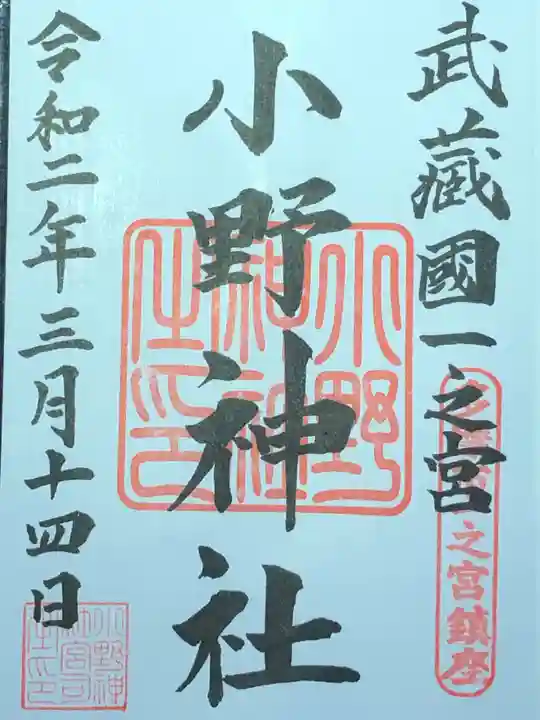 武藏國一之宮
之宮鎮座
小野神社
小野神社之印
令和二年三月十四日
小野神社宮司之印